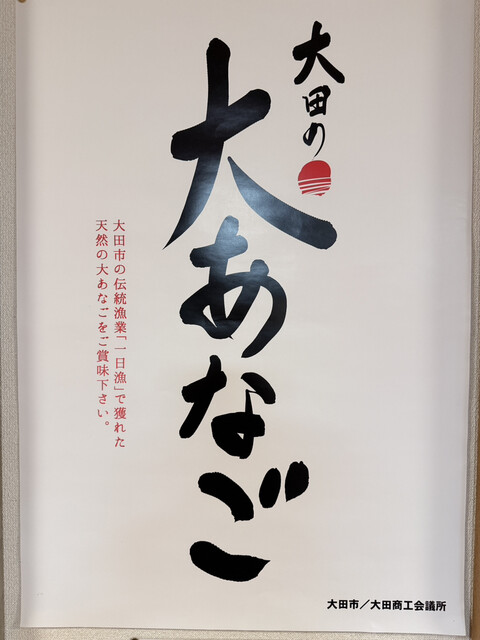 大田の
大あなご
大田市の伝統漁業「一日漁」で獲れた
天然の大あなごをご賞味下さい。
大田市／大田商工会議所